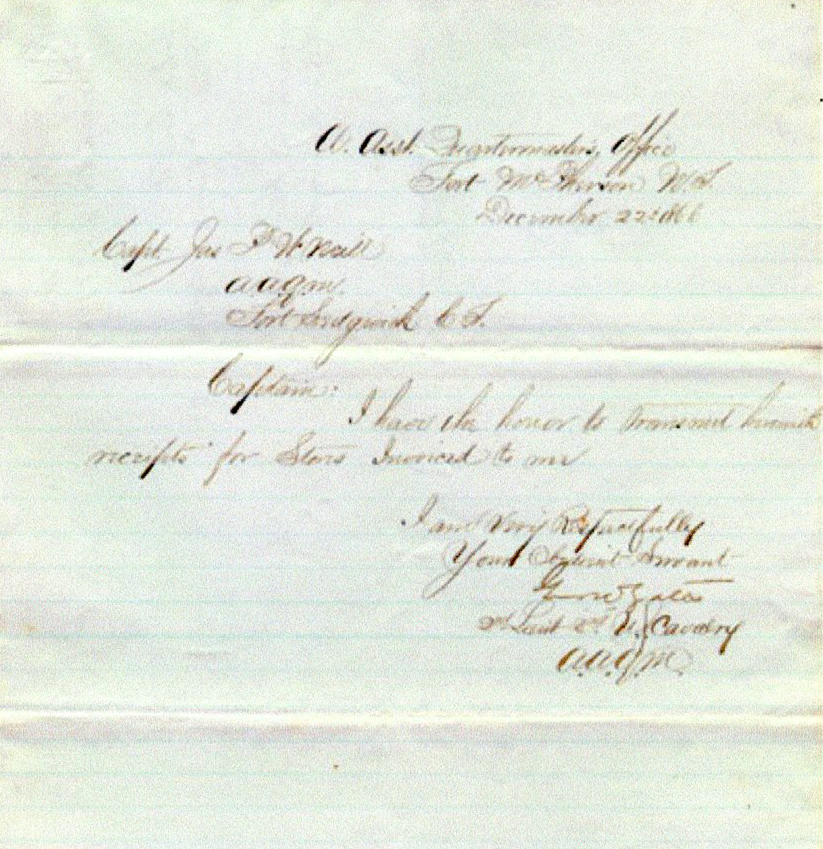 A. Asst. Quartermasters Office
Fort McPherson N.T.
December 22d 1866
Capt Jas P. W. Neill
A.A.Q.M.
Fort Sedgwick C.T.
Captain:
I have the honor to transmit herewith
receipts for Stores Invoiced to me
I am Very Respectfully
Your Obedient Servant
Geo W Yates
2d Lieut 2d U.S. Cavalry
A.A.Q.M.